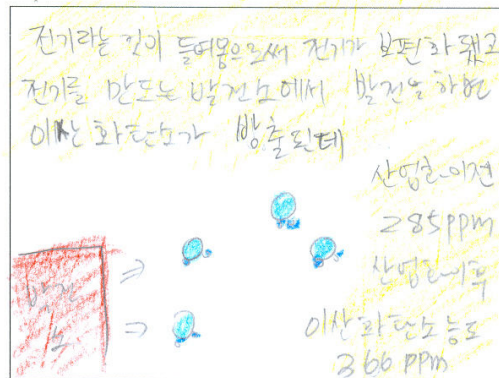 전기라는 것이 들어옴으로써 전기가 보편화 됐고
전기를 만드는 발전소에서 발전을 하면
이산화탄소가 방출된데
산업화 이전
285ppm
산업화 이후
이산화탄소 농도
366 ppm
발전
소